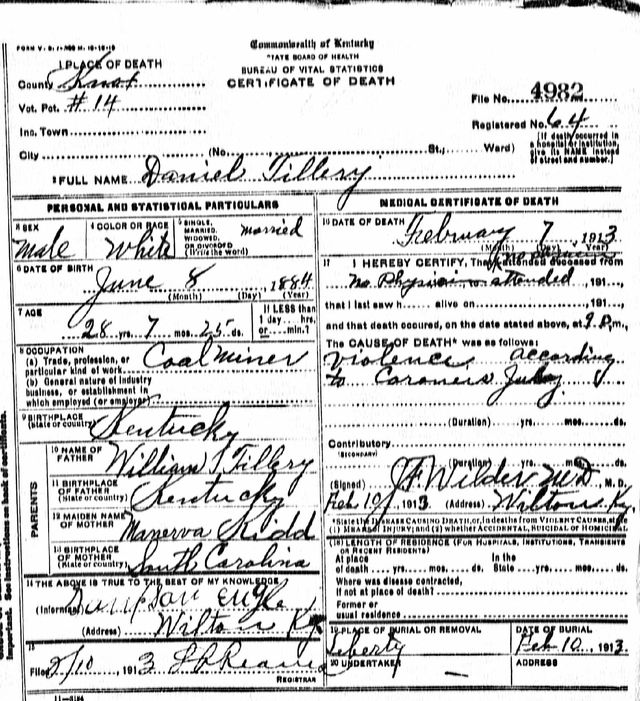 Commonwealth of Kentucky
STATE BOARD OF HEALTH
BUREAU OF VITAL STATISTICS
CERTIFICATE OF DEATH
1 PLACE OF DEATH
County Knox
Vot. Pct. #14
Inc. Town
City (No. St.; Ward)
File No. 4982
Registered No. 64
[If death occurred in a hospital or institution, give its NAME instead of street and number.]
2 FULL NAME Daniel Tillery
PERSONAL AND STATISTICAL PARTICULARS
3 SEX Male
4 COLOR OR RACE White
5 SINGLE, MARRIED, WIDOWED, OR DIVORCED (Write the word) married
6 DATE OF BIRTH June 8 1884
(Month) (Day) (Year)
7 AGE 28 yrs. 7 mos. 25 ds.
If LESS than 1 day, hrs. or min.?
8 OCCUPATION
(a) Trade, profession, or particular kind of work Coal miner
(b) General nature of industry business, or establishment in which employed (or employer)
9 BIRTHPLACE (State or country) Kentucky
PARENTS
10 NAME OF FATHER William Tillery
11 BIRTHPLACE OF FATHER (State or country) Kentucky
12 MAIDEN NAME OF MOTHER Manerva Kidd
13 BIRTHPLACE OF MOTHER (State or country) South Carolina
14 THE ABOVE IS TRUE TO THE BEST OF MY KNOWLEDGE
(Informant) Simpson Engle
(Address) Wilton Ky
15
Filed 2/10, 1913
REGISTRAR
11-3184
MEDICAL CERTIFICATE OF DEATH
16 DATE OF DEATH February 7, 1913
(Month) (Day) (Year)
17 I HEREBY CERTIFY, That I attended deceased from
no Physician attended, 191
that I last saw h alive on, 191
and that death occured, on the date stated above, at 9 P.m.
The CAUSE OF DEATH* was as follows:
violence according
to Coroners Jury
(Duration) yrs. mos. ds.
Contributory
(SECONDARY)
(Duration) yrs. mos. ds.
(Signed) J F Wilder MD M. D.
Feb 10, 1913 (Address) Wilton Ky.
*State the DISEASE CAUSING DEATH, or, in deaths from VIOLENT CAUSES, state
(1) MEANS OF INJURY; and (2) whether ACCIDENTAL, SUICIDAL or HOMICIDAL.
(18) LENGTH OF RESIDENCE (FOR HOSPITALS, INSTITUTIONS, TRANSIENTS OR RECENT RESIDENTS)
At place of death yrs. mos. ds. In the State yrs. mos. ds.
Where was disease contracted,
if not at place of death?
Former or
usual residence
19 PLACE OF BURIAL OR REMOVAL Liberty
DATE OF BURIAL Feb 10, 1913
20 UNDERTAKER
ADDRESS